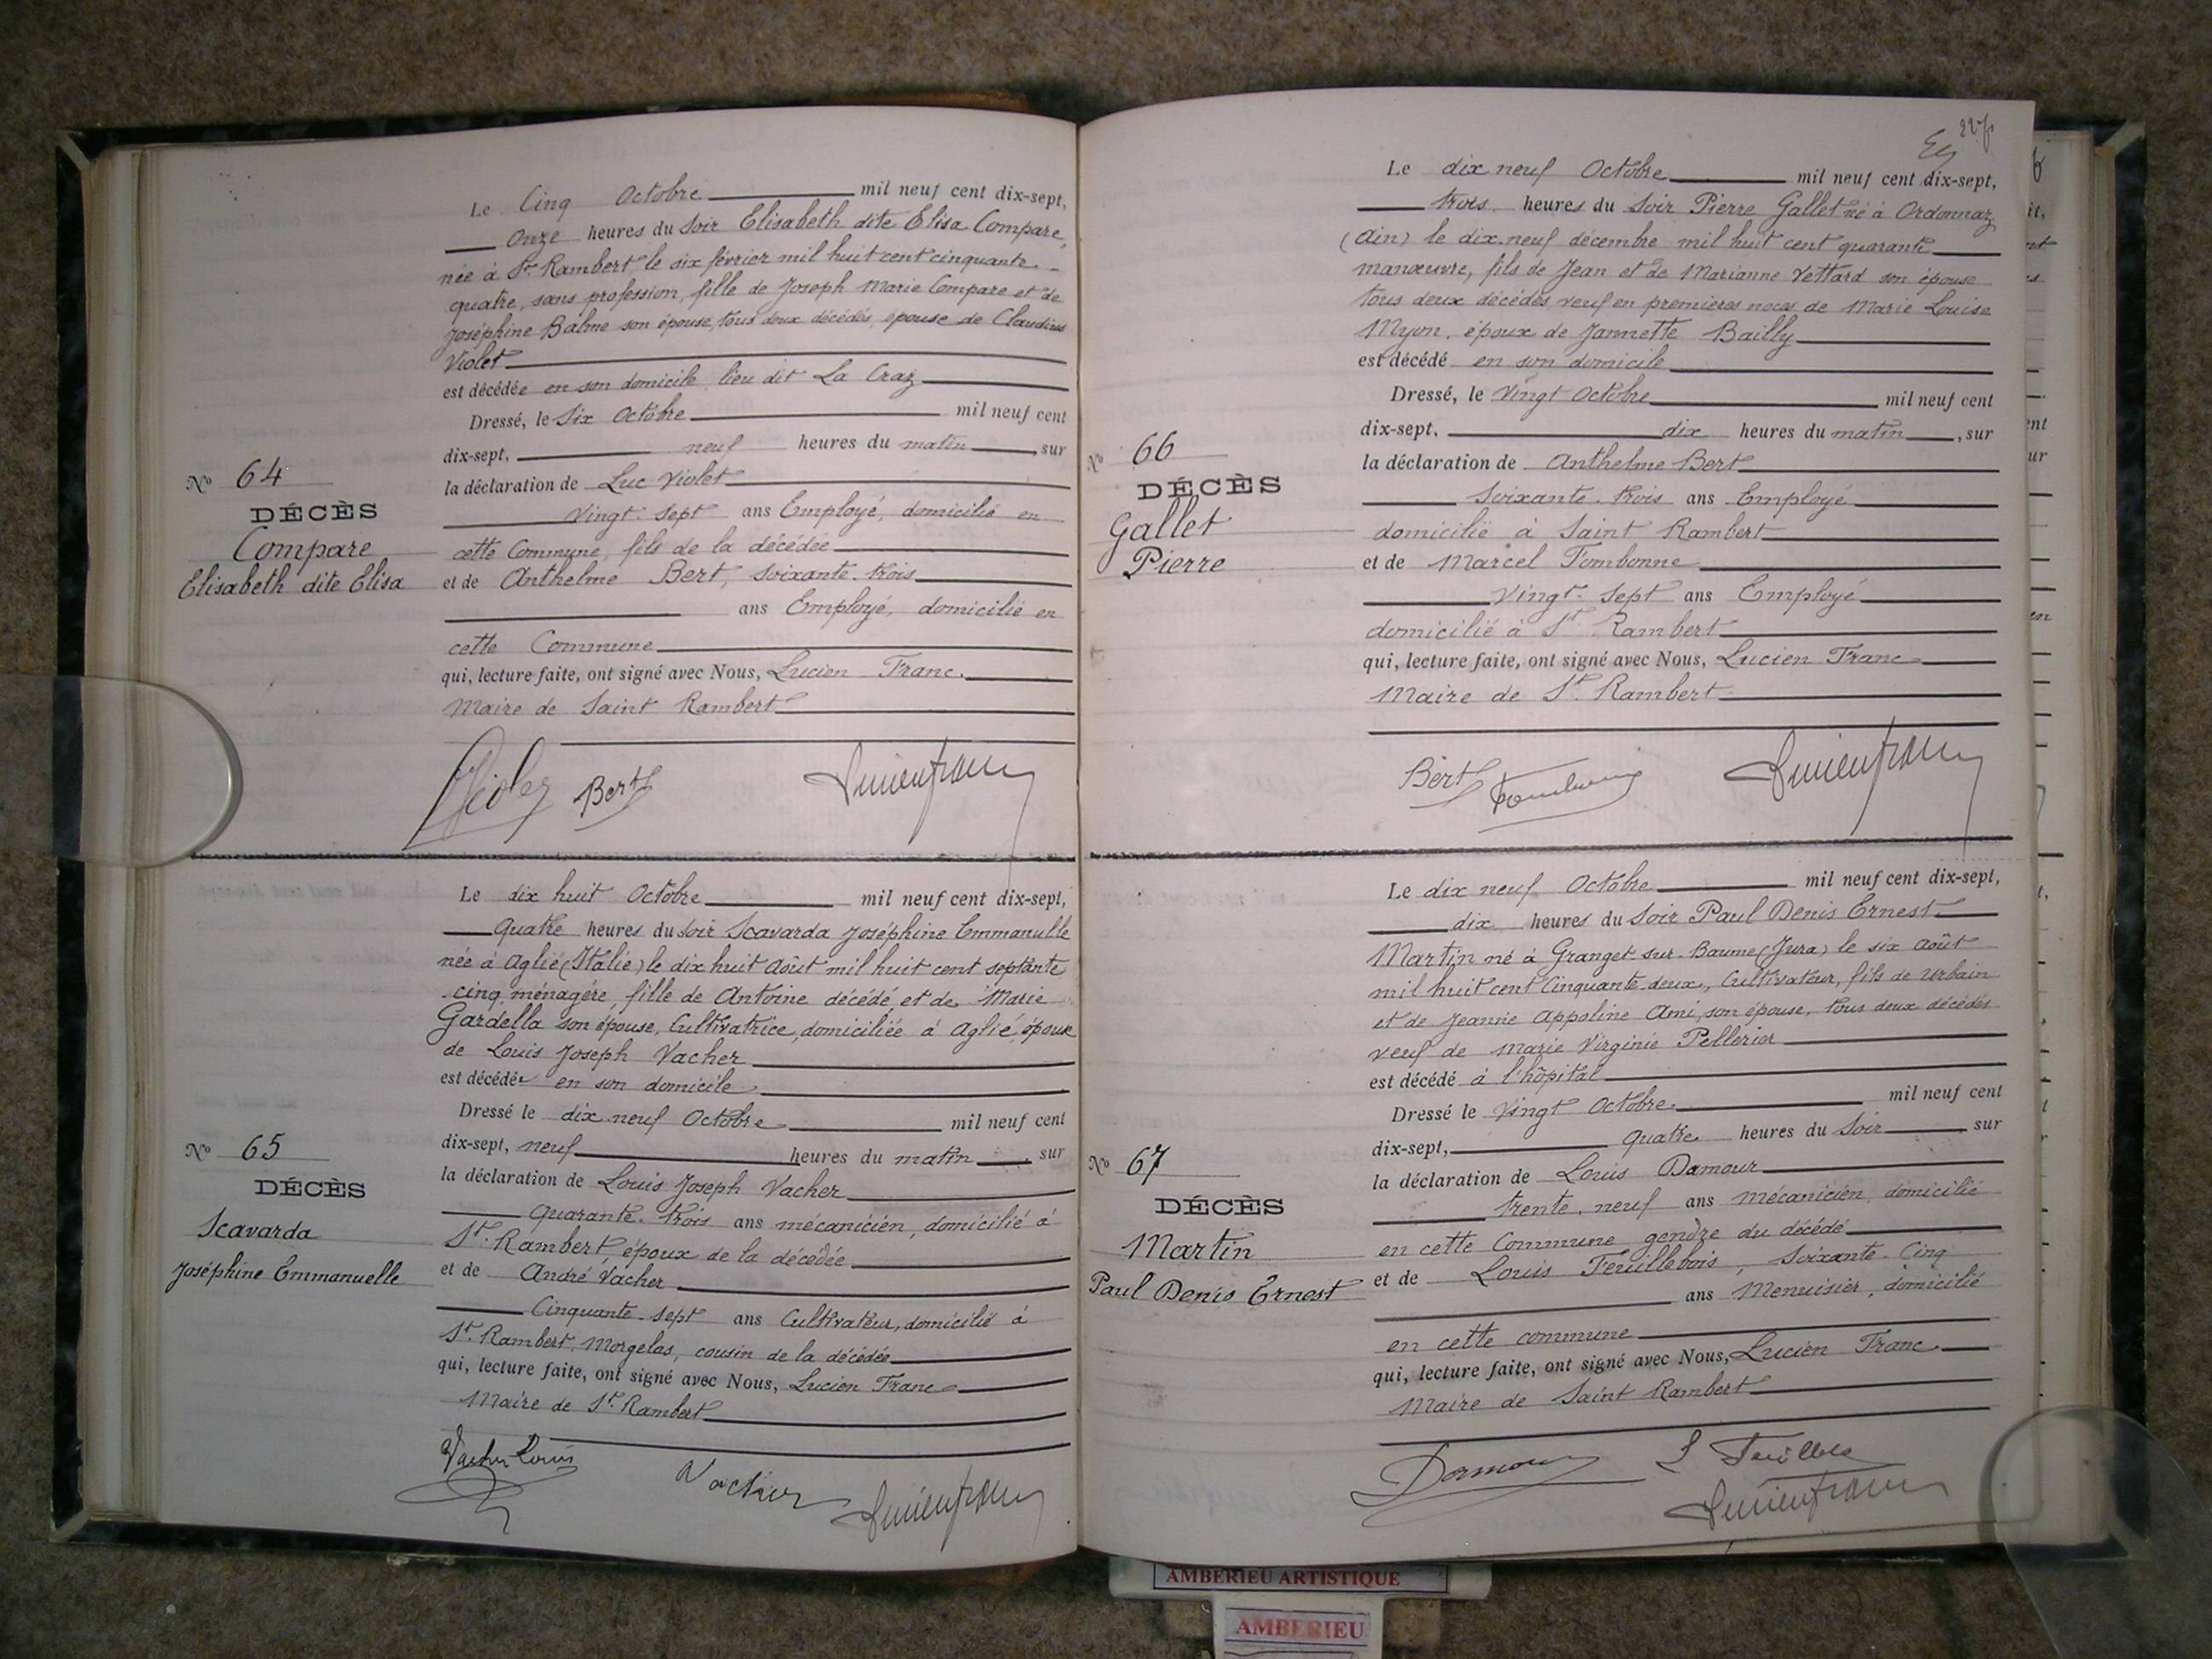 Le Cinq Octobre mil neuf cent dix-sept,
Onze heures du Soir Elisabeth dite Elisa Compare,
née à St. Rambert le six février mil huit cent cinquante-
quatre, sans profession, fille de Joseph Marie Compare et de
Joséphine Balme son épouse, tous deux décédés, épouse de Claudius
Violet
est décédée en son domicile lieu dit La Craz
Dressé, le Six Octobre mil neuf cent
dix-sept, neuf heures du matin, sur
la déclaration de Luc Violet
Vingt-sept ans Employé, domicilié en
cette Commune, fils de la décédée
et de Anthelme Bert, soixante-trois
ans Employé, domicilié en
cette Commune
qui, lecture faite, ont signé avec Nous, Lucien Franc.
Maire de Saint Rambert
No 64
DÉCÈS
Compare
Elisabeth dite Elisa
Bert
Lucien Franc
Le dix huit Octobre mil neuf cent dix-sept,
quatre heures du Soir Scavarda Joséphine Emmanuelle
née à Aglié (Italie) le dix huit Août mil huit cent septante
cinq, ménagère, fille de Antoine décédé et de Marie
Gardella son épouse, Cultivatrice, domiciliée à Aglié, épouse
de Louis Joseph Vacher
est décédée en son domicile
Dressé le dix-neuf Octobre mil neuf cent
dix-sept, neuf heures du matin, sur
la déclaration de Louis Joseph Vacher
quarante-trois ans mécanicien, domicilié à
St. Rambert, époux de la décédée
et de André Vacher
Cinquante-sept ans Cultivateur, domicilié à
St. Rambert, Morgelas, cousin de la décédée
qui, lecture faite, ont signé avec Nous, Lucien Franc
Maire de St. Rambert
No 65
DÉCÈS
Scavarda
Joséphine Emmanuelle
Vacher Louis
Vacher
Lucien Franc
Le dix neuf Octobre mil neuf cent dix-sept,
trois heures du Soir Pierre Gallet né à Ordonnaz
(Ain) le dix-neuf décembre mil huit cent quarante
manœuvre, fils de Jean et de Marianne Vettard son épouse
tous deux décédés veuf en premières noces de Marie Louise
Myon, époux de Jannette Bailly
est décédé en son domicile
Dressé, le Vingt Octobre mil neuf cent
dix-sept, dix heures du matin, sur
la déclaration de Anthelme Bert
Soixante-trois ans Employé
domicilié à Saint Rambert
et de Marcel Tombonne
Vingt-Sept ans Employé
domicilié à St. Rambert
qui, lecture faite, ont signé avec Nous, Lucien Franc
Maire de St. Rambert
No 66
DÉCÈS
Gallet
Pierre
Bert
Lucien Franc
Le dix neuf Octobre mil neuf cent dix-sept,
dix heures du Soir Paul Denis Ernest
Martin né à Granget sur Baume (Jura) le six Août
mil huit cent Cinquante-deux, Cultivateur, fils de Urbain
et de Jeanne Appoline Ami, son épouse, tous deux décédés
veuf de Marie Virginie Pellerier
est décédé à l'hôpital
Dressé le Vingt Octobre mil neuf cent
dix-sept, quatre heures du Soir sur
la déclaration de Louis Damour
trente-neuf ans mécanicien, domicilié
en cette Commune gendre du décédé
et de Louis Feuillebois, Soixante-Cinq
ans Menuisier, domicilié
en cette commune
qui, lecture faite, ont signé avec Nous, Lucien Franc
Maire de Saint Rambert
No 67
DÉCÈS
Martin
Paul Denis Ernest
Lucien Franc
AMBERIEU ARTISTIQUE
AMBERIEU